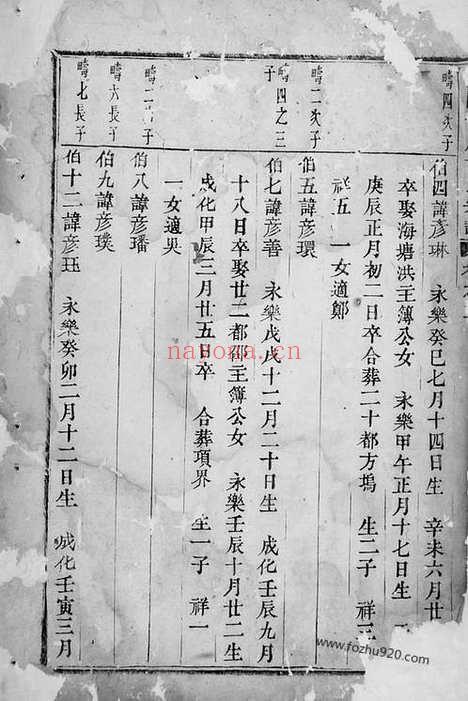 疇四次子
伯四諱彦琳 永樂癸巳七月十四日生 辛未六月廿
卒娶海塘洪主簿公女 永樂甲午正月十七日生
庚辰正月初二日卒合葬二十都方塢 生二子 祥三
祥五 一女適鄭
疇二次子
伯五諱彦環
疇四之三子
伯七諱彦善 永樂戊戌十二月二十日生 成化壬辰九月
十八日卒娶廿二都邵主簿公女 永樂壬辰十月廿二生
成化甲辰三月廿五日卒 合葬項界 生一子 祥一
一女適吳
疇二 子
伯八諱彦璠
疇六長子
伯九諱彦璞
疇七長子
伯十二諱彦珏 永樂癸卯二月十二日生 成化壬寅三月
nayona.cn
www.fozhu920.com